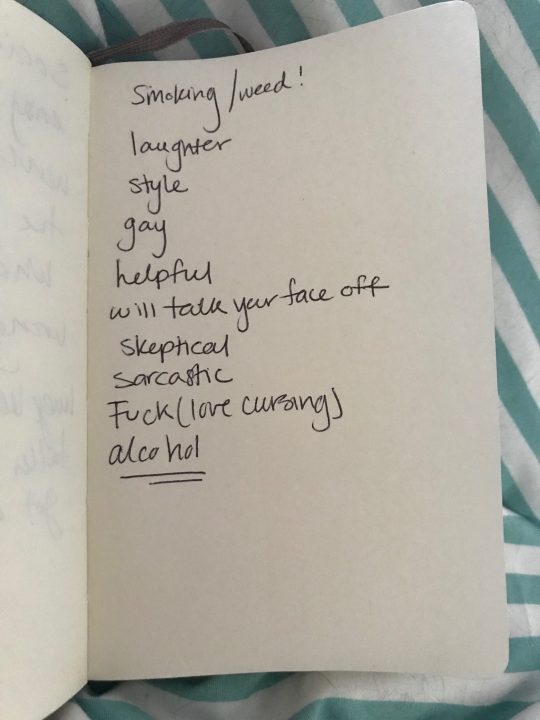 Smoking/weed!
laughter
style
gay
helpful
will talk your face off
skeptical
sarcastic
Fuck (love cursing)
alcohol